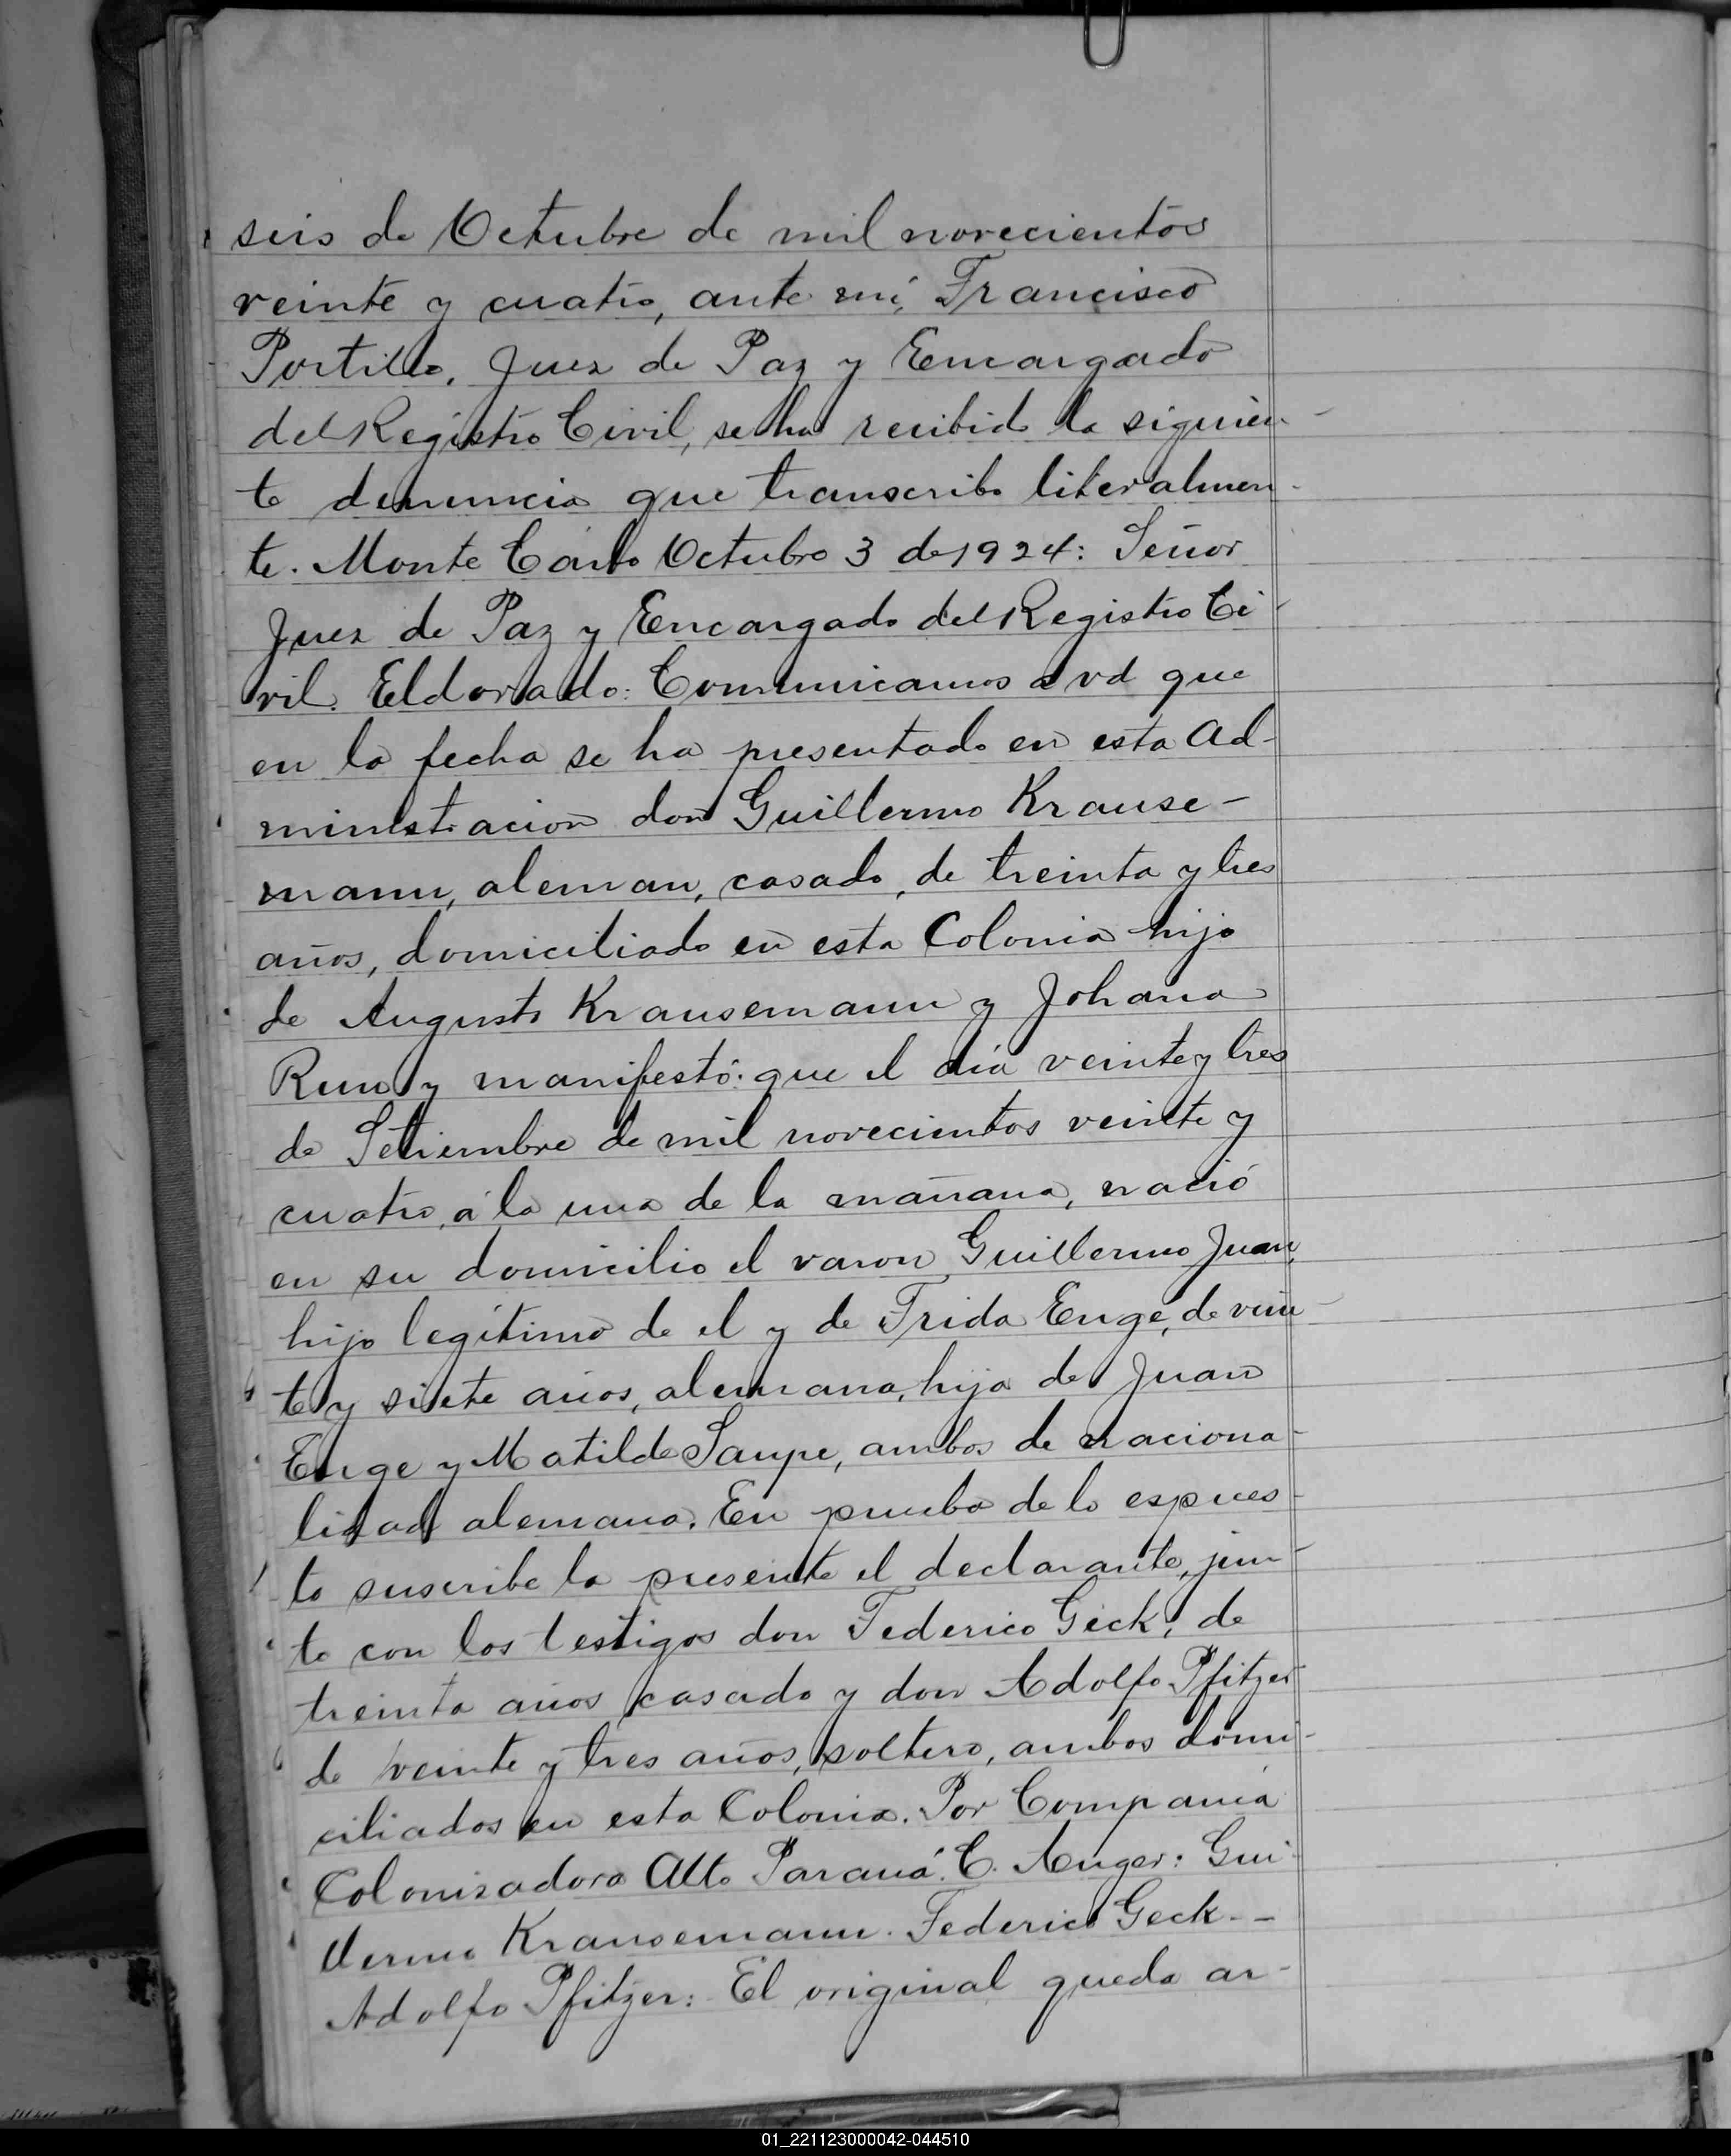 seis de Octubre de mil novecientos
veinte y cuatro, ante mí, Francisco
Portillo, Juez de Paz y Encargado
del Registro Civil, se ha recibido la siguien-
te denuncia que transcribo literalmen-
te. Monte Carlo Octubre 3 de 1924: Señor
Juez de Paz y Encargado del Registro Ci-
vil. Eldorado: Comunicamos a vd que
en la fecha se ha presentado en esta Ad-
ministracion don Guillermo Krause-
mann, aleman, casado, de treinta y tres
años, domiciliado en esta Colonia hijo
de Augusto Krausemann y Johana
y manifestó: que el día veinte y tres
de Setiembre de mil novecientos veinte y
cuatro, á la una de la mañana, nació
en su domicilio el varon Guillermo Juan,
hijo legítimo de el y de Frida Enge, de vein-
te y siete años, alemana, hija de Juan
Enge y Matilde Saupe, ambos de naciona-
lidad alemana. En prueba de lo espues-
to suscribe la presente el declarante, jun-
to con los testigos don Federico Geck, de
treinta años casado y don Adolfo Pfitzer
de veinte y tres años, soltero, ambos domi-
ciliados en esta Colonia. Por Compania
Colonizadora Alto Paraná. C. Auger: Gui-
llermo Krausemann. Federico Geck. -
Adolfo Pfitzer: El original queda ar-
01_221123000042-044510